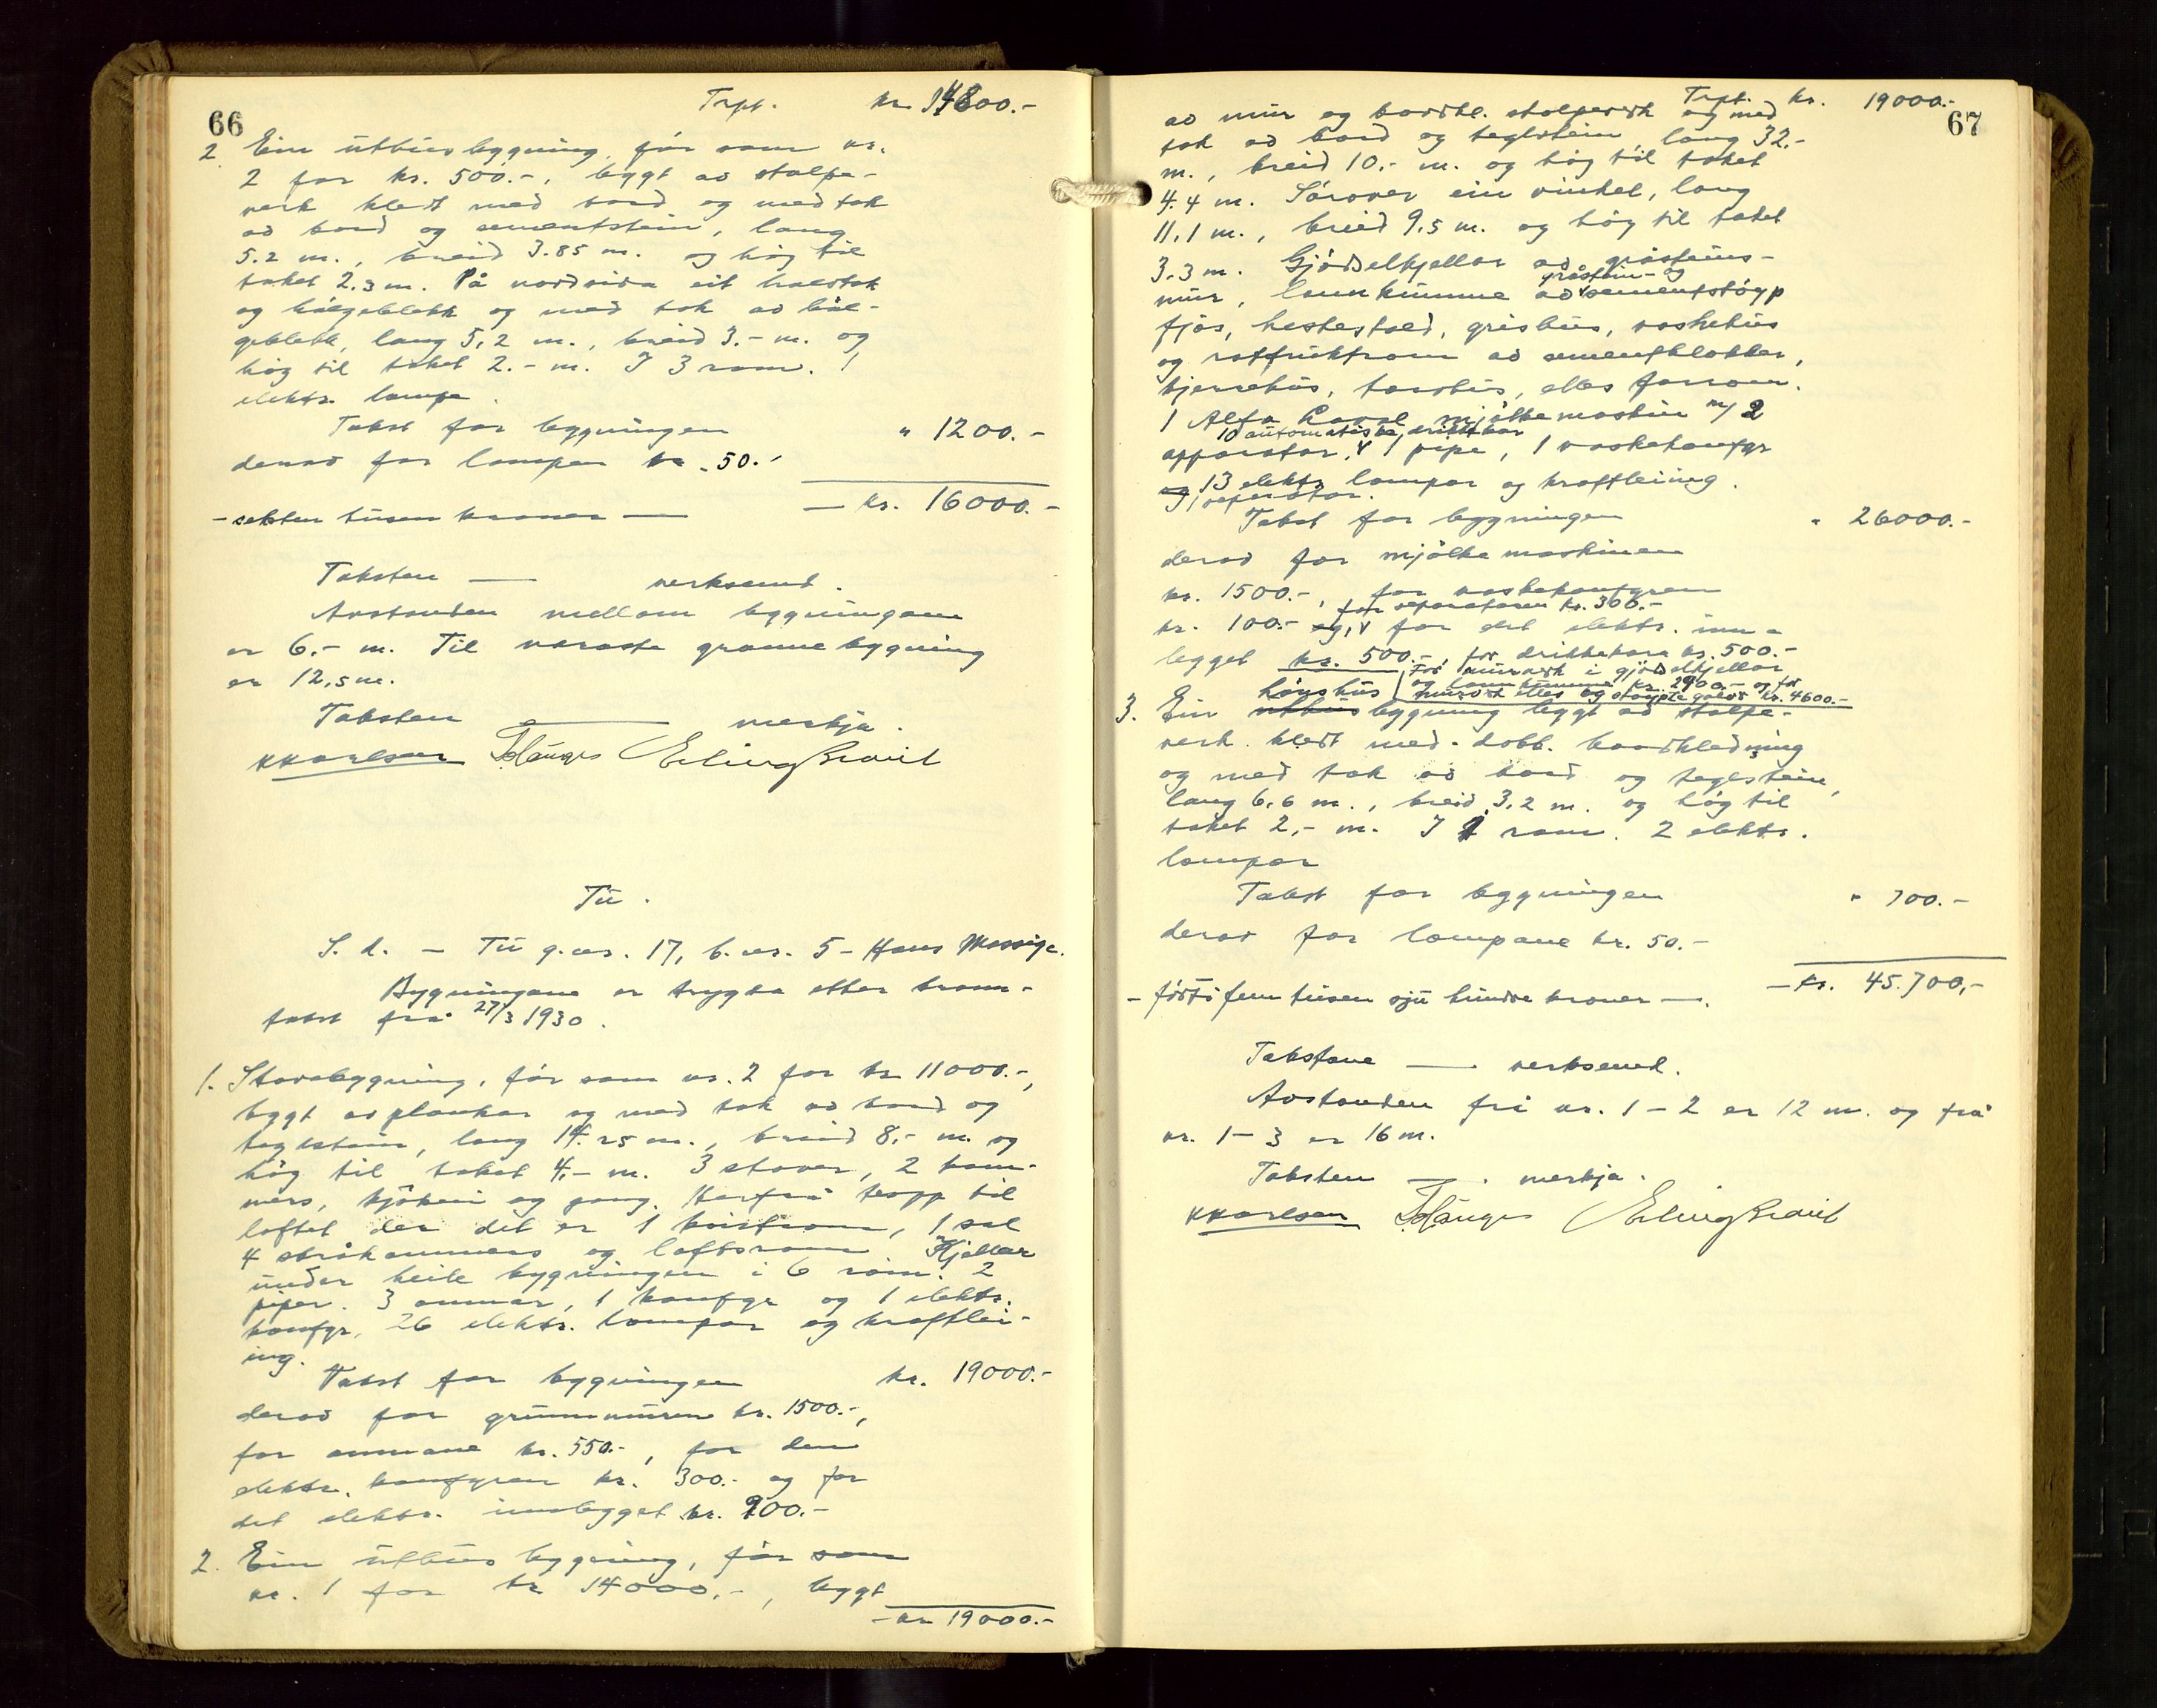 66
Trpt. kr 14800.-
2. Ein uthusbygning, før som nr.
2 for kr. 500.-, bygt av stolpe-
verk kledt med bord og med tak
av bord og sementstein, lang
5.2 m., breid 3.85 m. og høg til
taket 2.3 m. På nordsida eit halvtak
og bølgeblekk og med tak av bøl-
geblekk, lang 5,2 m., breid 3.- m. og
høg til taket 2.- m. I 3 rom. 1
elektr. lampe.
Takst for bygningen " 1200.-
derav for lampen kr. 50.-
- seksten tusen kroner — — kr. 16000.-
Taksten — verksemd.
Avstanden mellom bygningane
er 6.- m. Til næraste grannebygning
er 12,5 m.
Taksten — merkja.
KKarlsen T. Hauge Erling Braut
Tu.
S. d. - Tu g.nr. 17, b.nr. 5 - Hans Mossige.
Bygningane er trygda etter brann-
takst frå 27/3 1930.
1. Stovebygning, før som nr. 2 for kr 11000.-,
bygt av plankar og med tak av bord og
teglstein, lang 14.25 m., breid 8,- m. og
høg til taket 4,- m. 3 stover, 2 kam-
mers, kjøken og gang. Herfrå tropp til
loftet der det er 1 kvistrom, 1 sal
4 skråkammers og loftsrom. Kjellar
under heile bygningen i 6 rom. 2
piper. 3 omnar, 1 komfyr og 1 elektr.
komfyr, 26 elektr. lampar og kraftlei-
ing.
Takst for bygningen kr. 19000.-
derav for grunnmuren kr. 1500.-,
for omnane kr. 550.-, for den
elektr. komfyren kr. 300.- og for
det elektr. innlegget kr. 900.-
2. Ein uthusbygning, før som
nr. 1 for kr 14000.-, bygt
- kr 19000.-
67
Trpt. kr. 19000.-
av mur og bordkl. stolpeverk og med
tak av bord og teglstein, lang 32.-
m., breid 10.- m. og høg til taket
4.4 m. Sørover ein vinkel, lang
11.1 m., breid 9,5 m. og høg til taket
3.3 m. Gjødselkjellar av gråsteins-
gråstein- og
mur, lannkumme av sementstøyp
fjøs, hestestall, grishus, vaskehus
og rotfruktrom av sementblokker,
kjerrehus, torvhus, elles forrom.
1 Alfa Laval mjølkemaskin m/ 2
10 automatiske drikkekar
apparatar, 1 pipe, 1 vaskekomfyr
og 13 elektr lampar og kraftleiing.
og 1 separator.
Takst for bygningen " 26000.-
derav for mjølkemaskinen
kr. 1500.-, for vaskekomfyren
for separatoren kr. 300.-
kr. 100.- og, for det elektr. inn-
legget kr. 500.-, for drikkekara kr. 500.-
For murverk i gjødselkjellar
og lannkumme kr. 2900.- og for
murverk elles og støypte golv kr. 4600.-
hønshus
3. Ein uthusbygning bygt av stolpe-
verk. kledt med dobb. bordkledning
og med tak av bord og teglstein,
lang 6,6 m., breid 3,2 m. og høg til
taket 2,- m. I 1 rom. 2 elektr.
lampar
Takst for bygningen " 700.-
derav for lampane kr. 50.-
- førtifem tusen sju hundre kroner —. — kr. 45.700,-
Takstane — verksemd.
Avstanden frå nr. 1 - 2 er 12 m. og frå
nr. 1 - 3 er 16 m.
Taksten — merkja.
KKarlsen T. Hauge Erling Braut